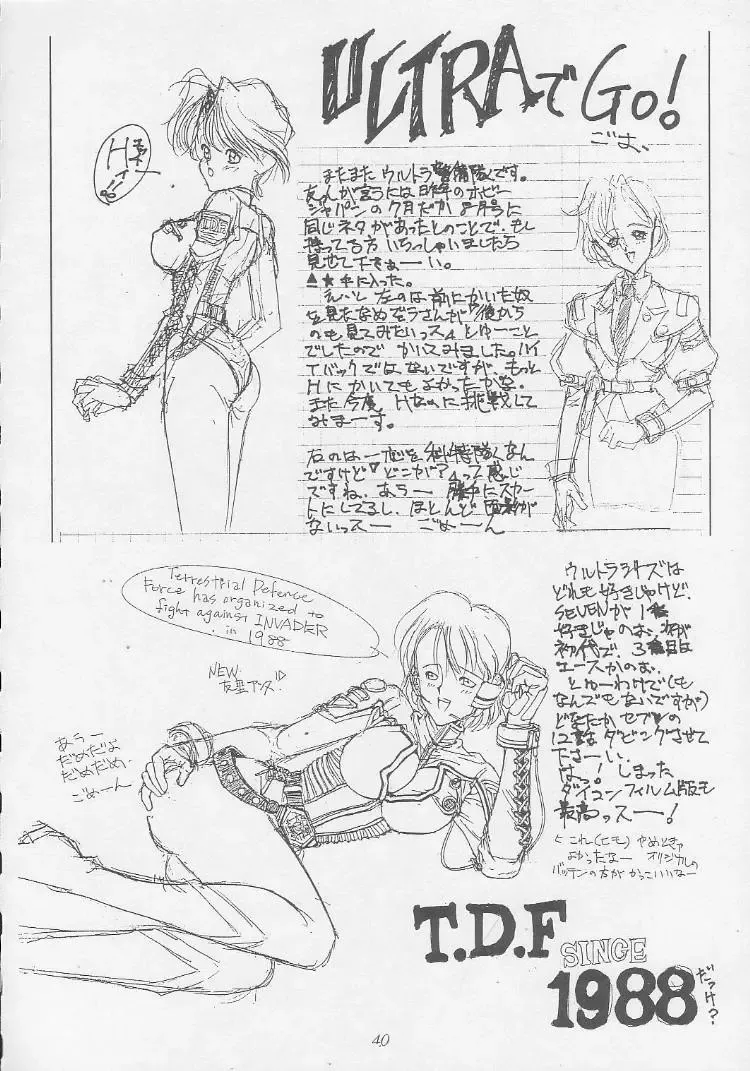 ULTRAでGo!
ごよ、
Hィー!!
またまた ウルトラ警備隊くです。
友人が言うには昨年のホビー
ジャパンの7月だか8月号に
同じネタがあったとのことで、もし
持ってる方 いらっしゃいましたら
見せて下さぁーい。
▲★手に入った。
えーと 左のは前にかいた奴
を見た
のも見てみたいっス」とゆーこと
でしたので かいてみました。ハイ
レバックではないですが、もっと
Hにかいてもよかったかな。
また今度、Hなのに挑戦して
みまーす。
右のは一応科特隊くなん
ですけど「どこが?」って感じ
ですね、あうー 勝手にスカー
トにしてるし、ほとんど
ないっスー ごめーん
Terrestrial Defence
Force has organized to
fight against INVADER
in 1988
NEW
友里アンヌ!
あうー
だめだよ
だめだめだめい
ごめーん
ウルトラシリーズは
どれも好きじゃけど、
SEVENが1番
好きじゃのぉ、
初代で、3番目は
エースかのぉ、
とゆーわけで(も
なんでもないですが)
どなたか セブンの
12話ダビングさせて
下さーい、
はっ!しまった
ダイコンフィルム版も
最高っスー!
これ(ヒモ) やめときゃ
よかったなー オリジナルの
バッテンの方が かっこいいなー
T.D.F
SINCE
1988
だっけ?
40